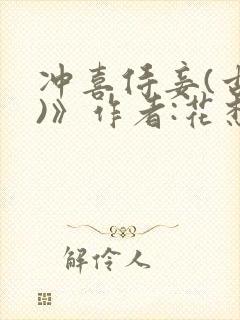 冲喜侍妾(古
)》作者:花
解伶人